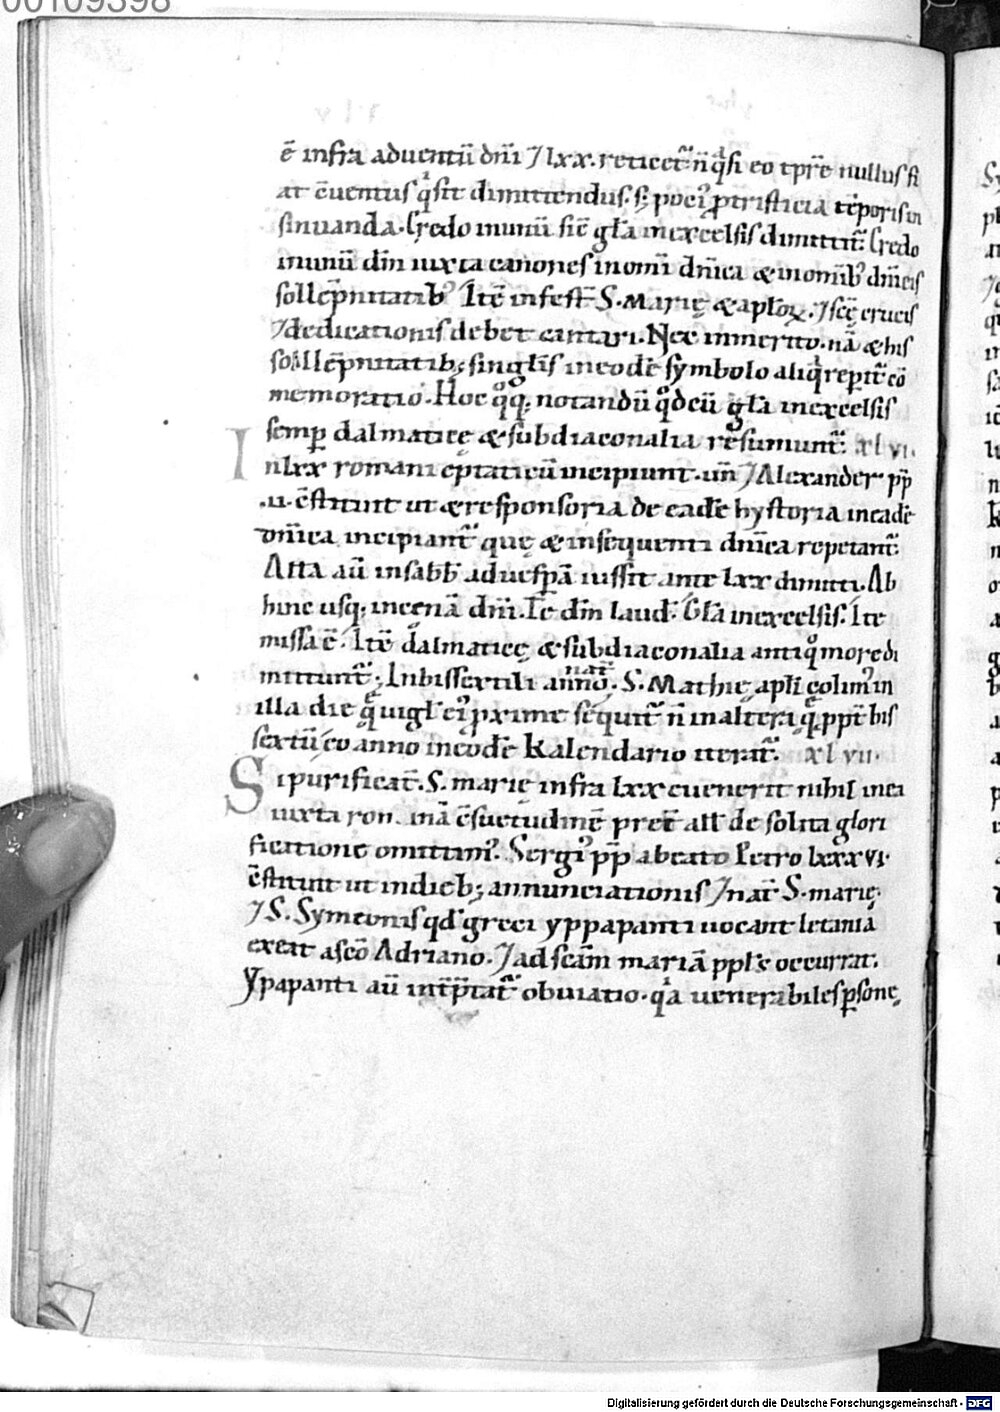 00109398
ē infra aduentū dn̄i ⁊ lxx. reticet᷑ n̄ q̇si eo tp̄re nullus fi
at cͦuentus q̇ sit dimittendus. s; pociꝰ ꝓ tristicia tēporis in
sinuanda. Credo in unū sic̄ gl̄a in excelsis dimittit᷑. Credo
in unū dm̄ iuxta canones in omī dn̄ica & in omīb; dn̄icis
sollēpnitatib; Itē in fest̄ S. Marię & apl̄oꝝ. ⁊ sc̄ę crucis
⁊ dedicationis debet cantari. Nec inmerito. nā & his
sollēpnitatib; singl̄is in eodē symbolo aliq̇ reperit᷑ cō
memoratio. Hoc q̊q; notandū qd̊ cū gl̄a in excelsis
semꝑ dalmaticę & subdiaconalia resumunt᷑. xlvi.
In lxx romani eptaticū incipiunt. un̄ ⁊ Alexander pp̄
.ii. cͦstituit ut & responsoria de eadē hystoria in eadē
dn̄ica incipiant᷑ quę & in sequenti dn̄ica repetant᷑.
Atta aū in sabb̄ ad uesꝑā iussit ante lxx dimitti. Ab
hinc usq; in cenā dn̄i. Te dm̄ laud̄. Gl̄a in excelsis. Ite
missa ē. Itē dalmaticę & subdiaconalia antiq̊ more di
mittunt᷑; In bissextili anno. S. Mathię apl̄i colim᷑ in
illa die q̄ uigl̄ eiꝰ ꝓxime sequit᷑ n̄ in altera q̄ ꝓpt̄ bis
sextū eo anno in eodē kalendario iterat᷑. xlvii.
Si purificat̄. S. marię infra lxx euenerit nihil in ea
iuxta rom̄anā cͦsuetudinē pret̄ all̄ de solita glori
ficatione omittimꝰ. Sergiꝰ pp̄ a beato Petro lxxxvi.
cͦstituit ut in dieb; annunciationis ⁊ nat̄ S. marię.
⁊ S. Symeonis qd̄ greci yppapanti uocant letania
exeat a sc̄o Adriano. ⁊ ad sc̄am mariā ppl̄s occurrat.
Ypapanti aū int̄p̄tat᷑ obuiatio. q̇a uenerabiles ꝑsonę
Digitalisierung gefördert durch die Deutsche Forschungsgemeinschaft - DFG